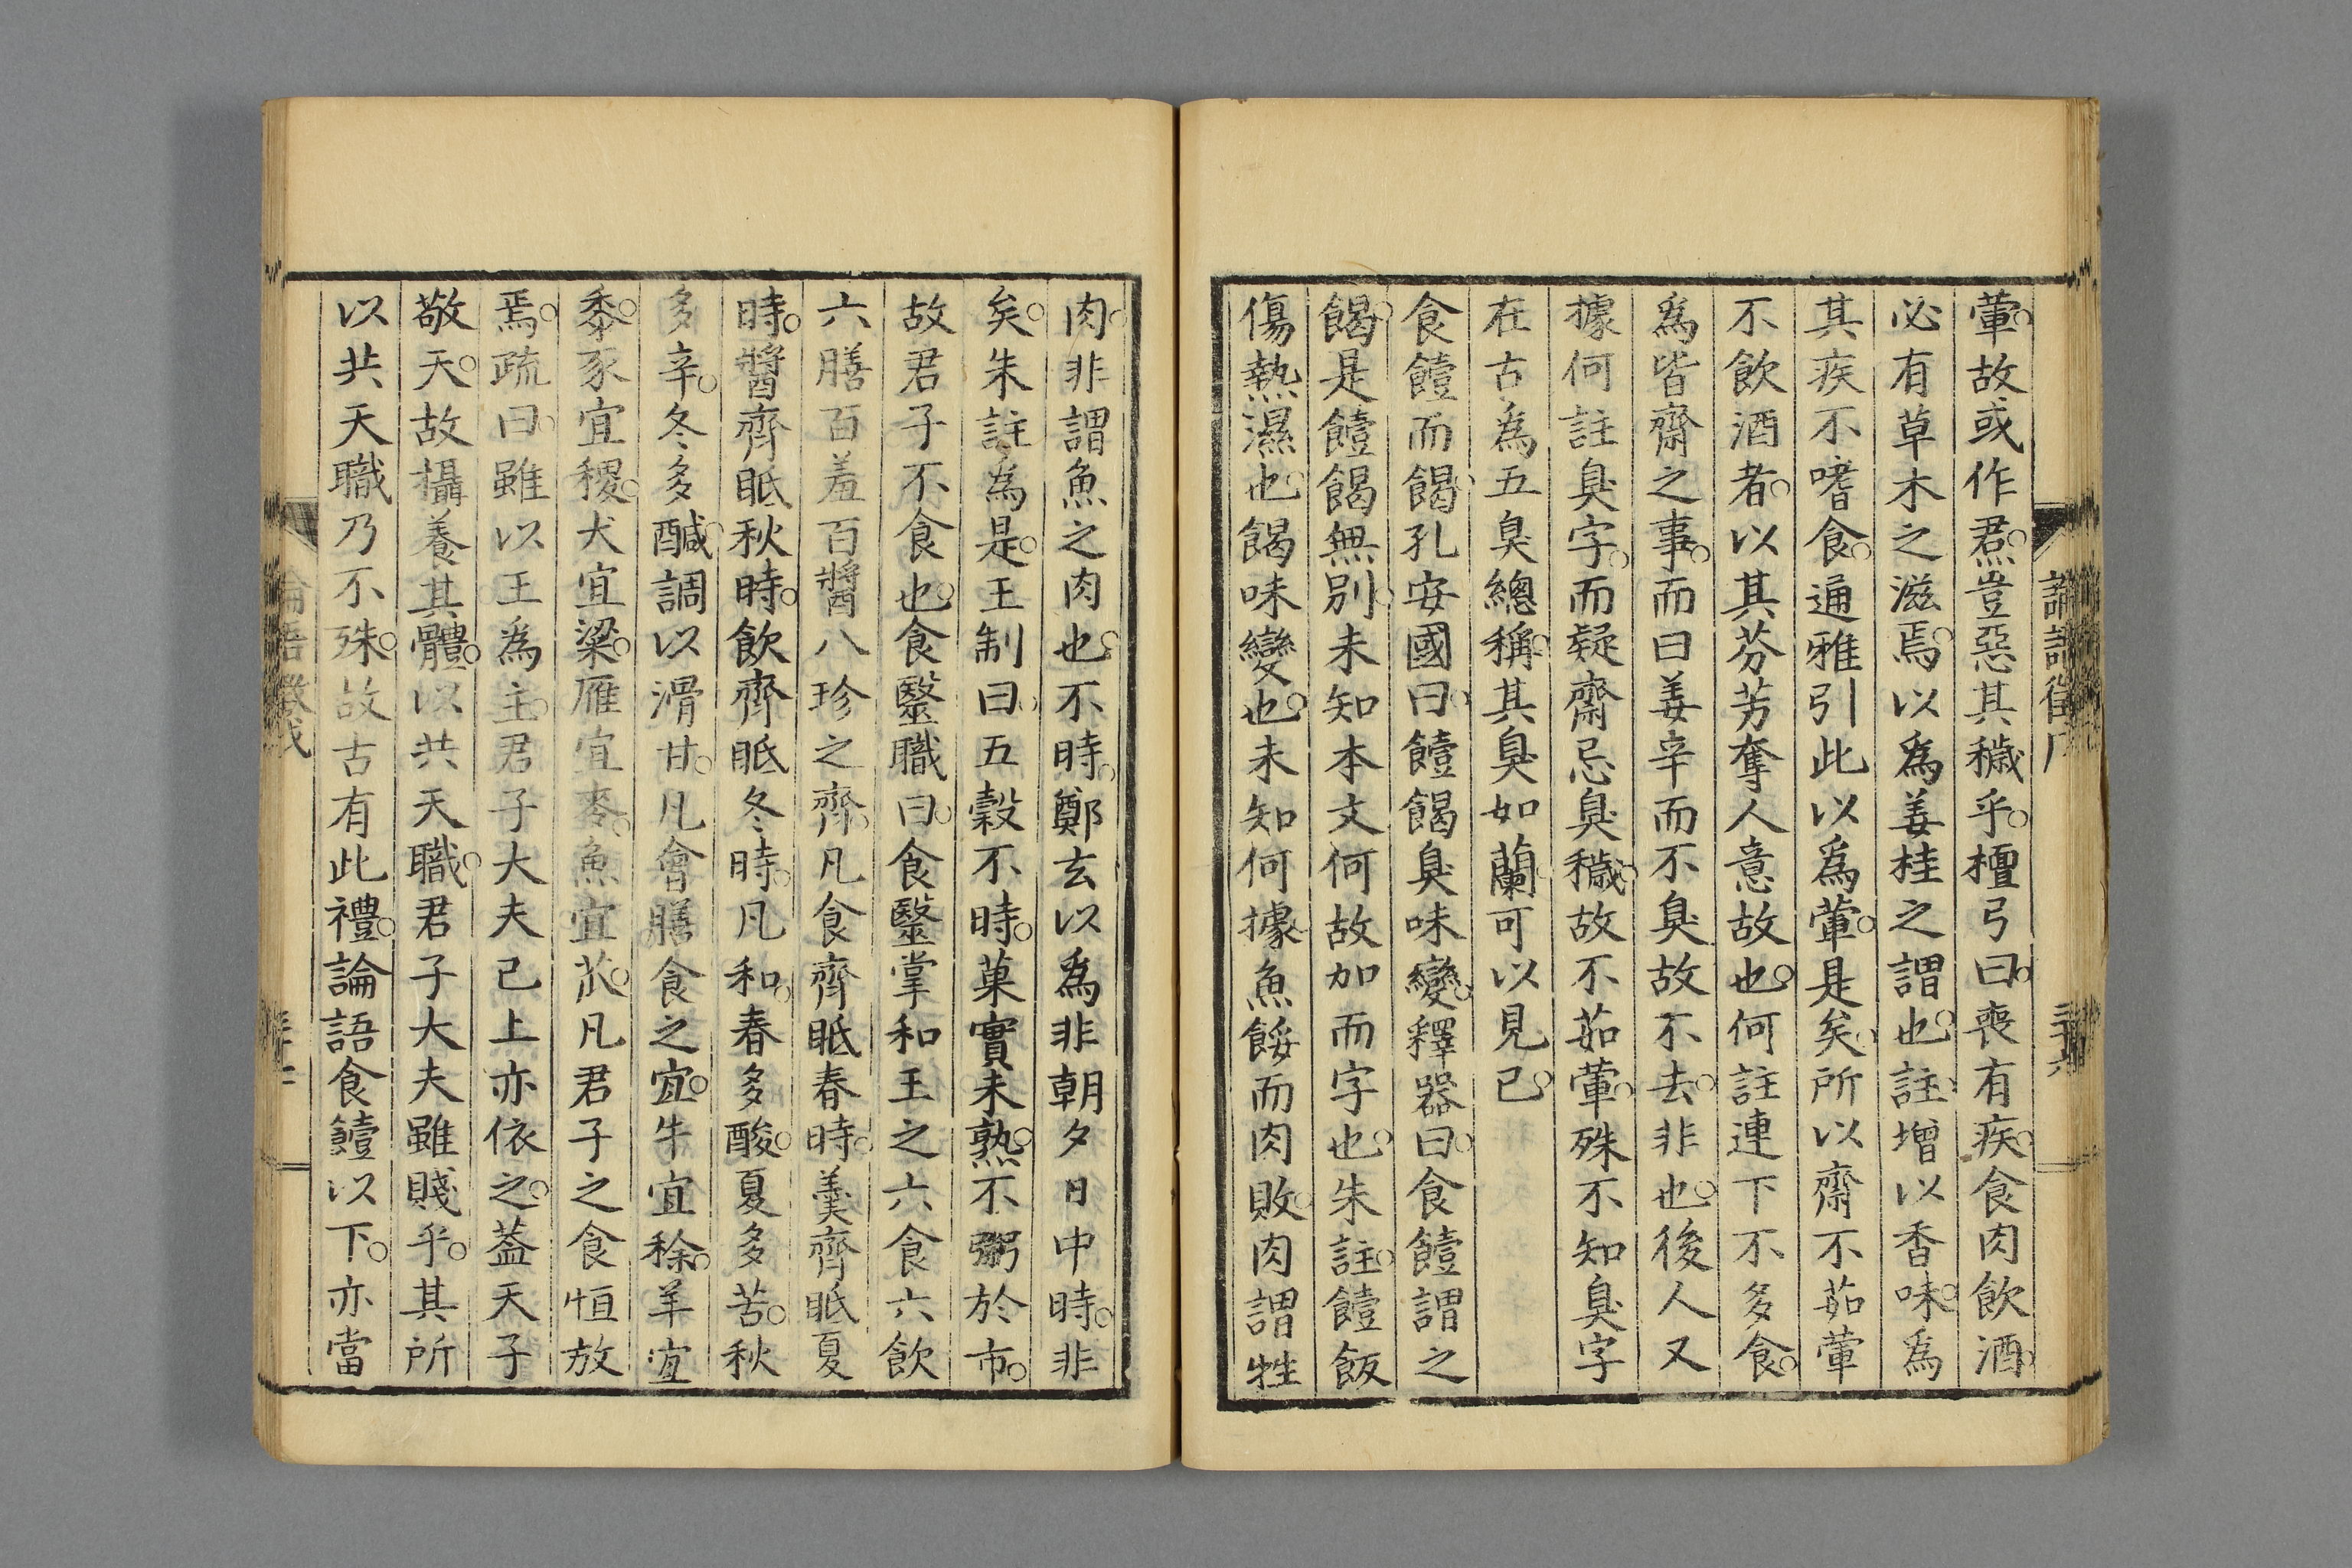 葷故或作焄豈惡其穢乎檀弓曰喪有疾食肉飲酒
必有草木之滋焉以為姜桂之謂也註增以香味為
其疾不嗜食通雅引此以為葷是矣所以齋不茹葷
不飲酒者以其芬芳奪人意故也何註連下不多食
為皆齋之事而曰姜辛而不臭故不去非也後人又
據何註臭字而疑齋忌臭穢故不茹葷殊不知臭字
在古為五臭總稱其臭如蘭可以見已
食饐而餲孔安國曰饐餲臭味變釋器曰食饐謂之
餲是饐餲無別未知本文何故加而字也朱註饐飯
傷熱濕也餲味變也未知何據魚餒而肉敗肉謂牲
肉非謂魚之肉也不時鄭玄以為非朝夕日中時非
矣朱註為是王制曰五穀不時菓實未熟不粥於市
故君子不食也食毉職曰食毉掌和王之六食六飲
六膳百羞百醬八珍之齊凡食齊眡春時羹齊眡夏
時醬齊眡秋時飲齊眡冬時凡和春多酸夏多苦秋
多辛冬多醎調以滑甘凡會膳食之宜牛宜稌羊宜
黍豕宜稷犬宜粱雁宜麥魚宜苽凡君子之食恒放
焉疏曰雖以王為主君子大夫已上亦依之蓋天子
敬天故攝養其體以共天職君子大夫雖賤乎其所
以共天職乃不殊故古有此禮論語食饐以下亦當